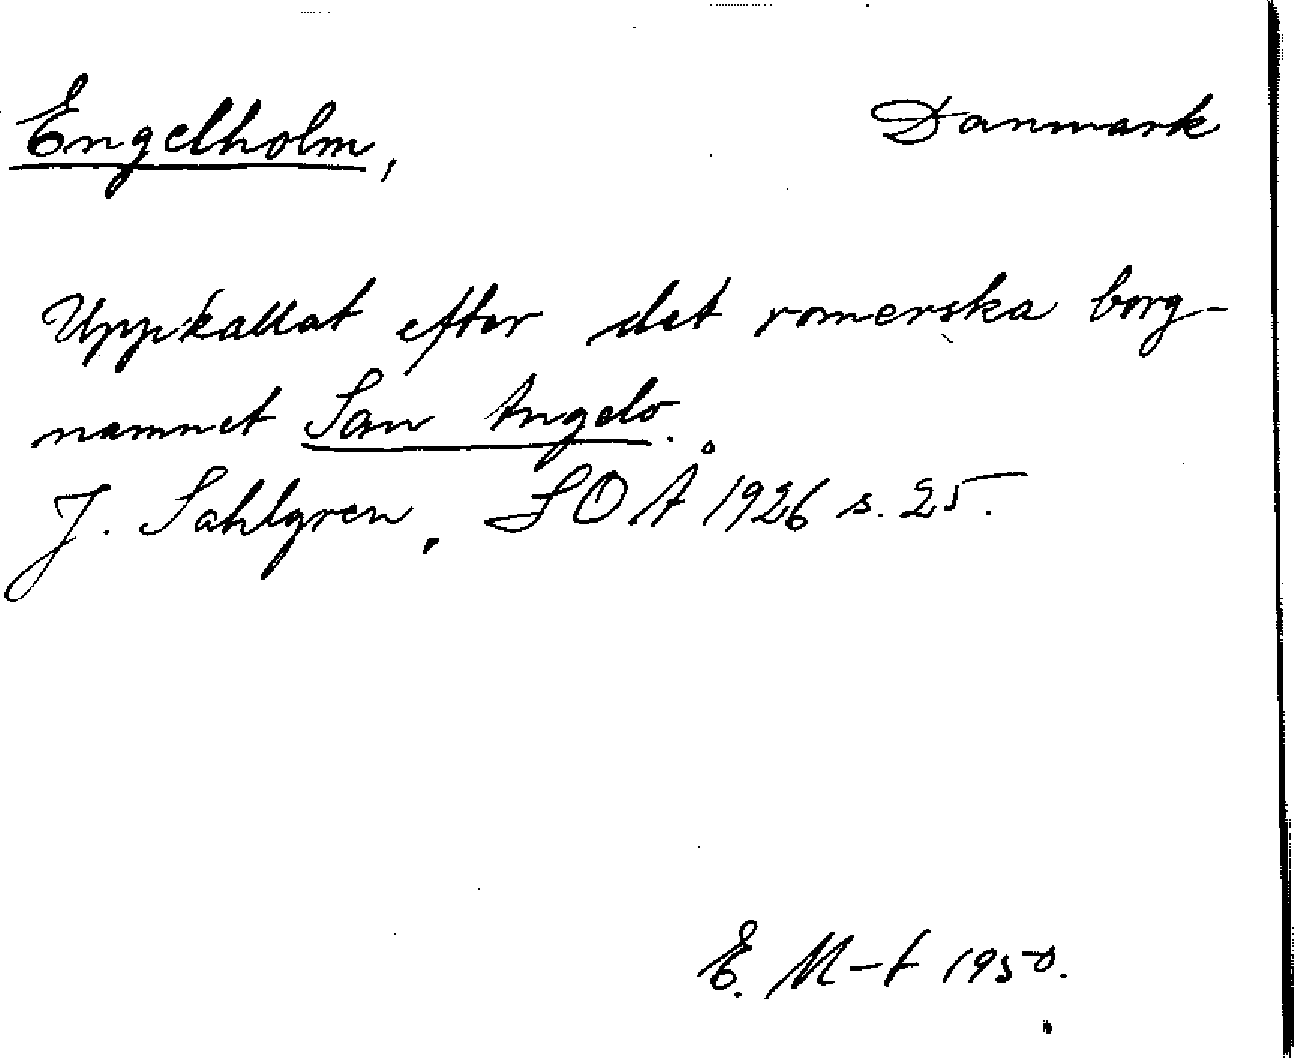 Engelholm, Danmark
Uppkallat efter det romerska borg-
namnet San Angelo.
J. Sahlgren, SOÅ 1926 s. 25.
E. M-t 1950.